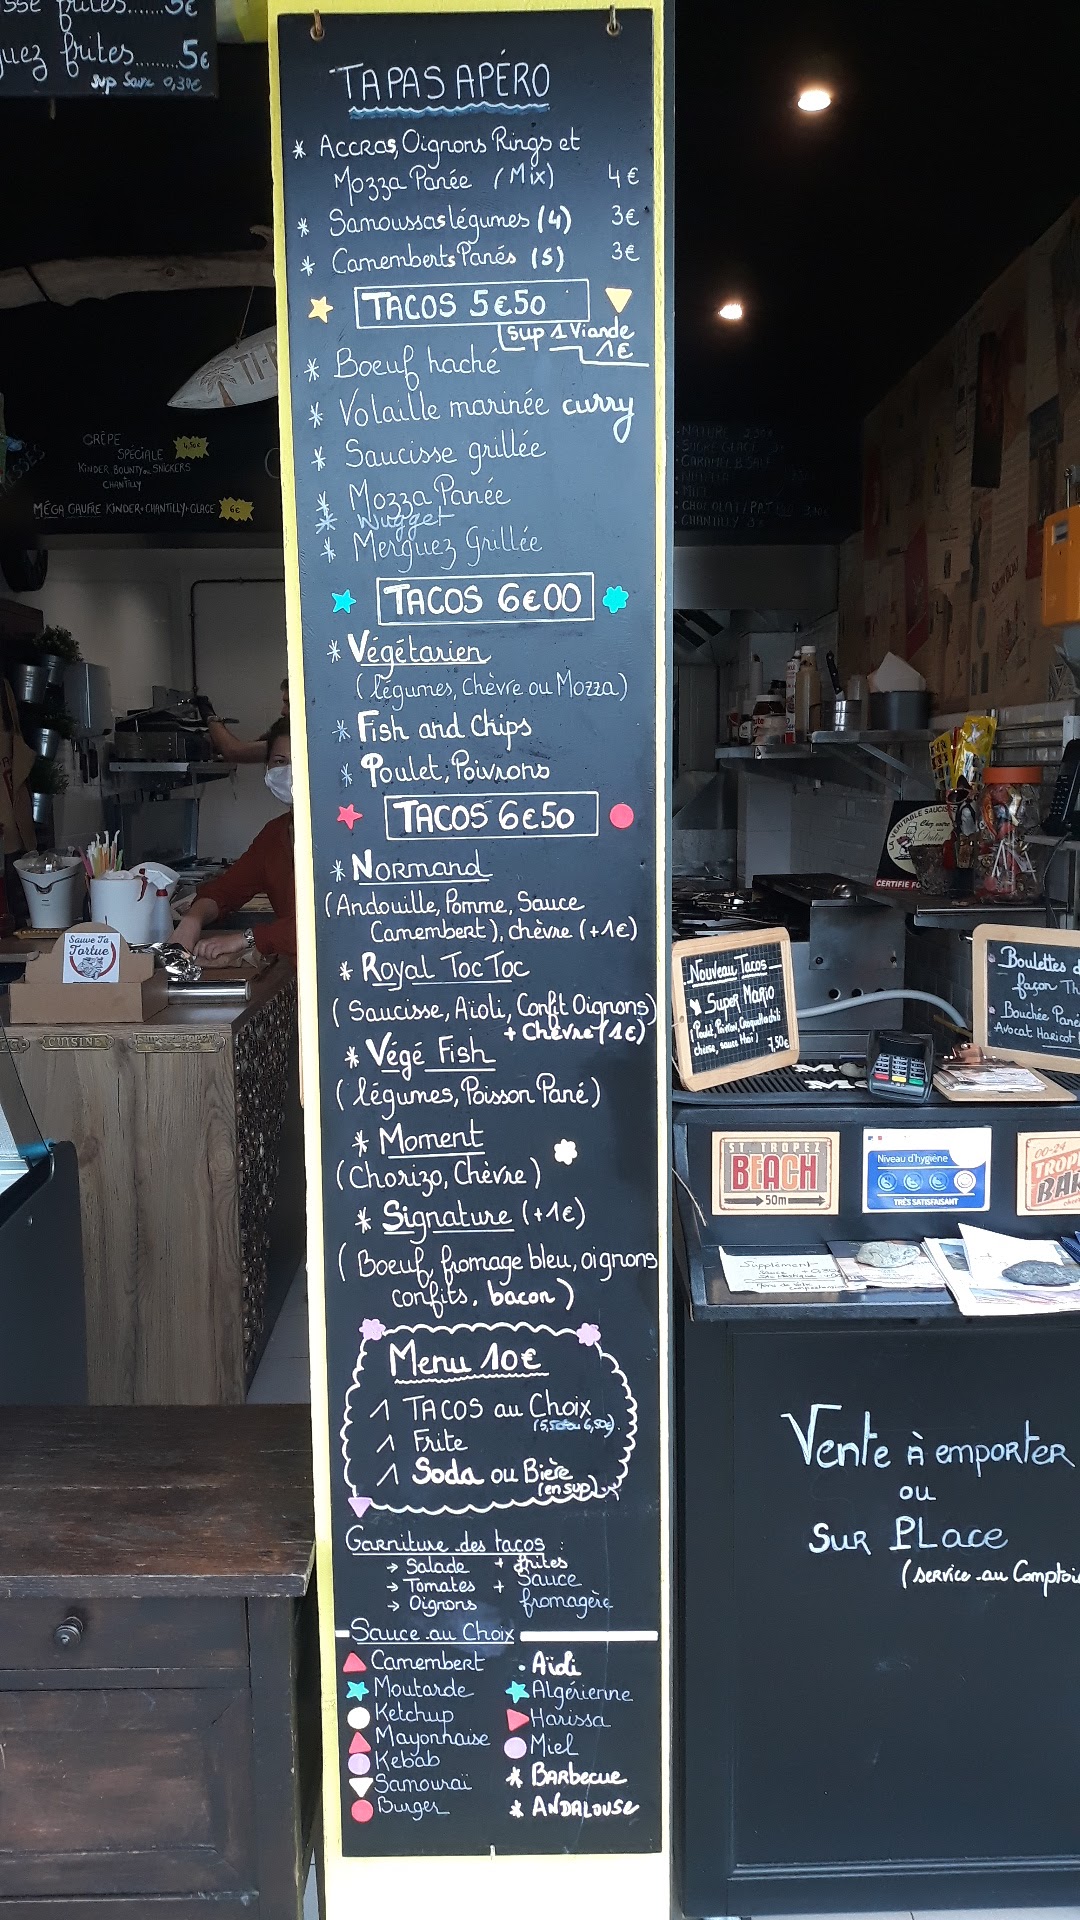 frites.......5€
frites........5€
sup Sauce 0,30€
TAPAS APÉRO
* Accras, Oignons Rings et
Mozza Panée (Mix) 4€
* Samoussas légumes (4) 3€
* Camemberts Panés (5) 3€
TACOS 5€50
sup 1 Viande
1€
* Boeuf haché
* Volaille marinée curry
* Saucisse grillée
* Mozza Panée
* Nugget
* Merguez Grillée
TACOS 6€00
* Végétarien
(légumes, Chèvre ou Mozza)
* Fish and Chips
* Poulet, Poivrons
TACOS 6€50
* Normand
(Andouille, Pomme, Sauce
Camembert), chèvre (+1€)
* Royal Toc Toc
(Saucisse, Aïoli, Confit Oignons)
+ Chèvre (1€)
* Végé Fish
(légumes, Poisson Pané)
* Moment
(Chorizo, Chèvre)
* Signature (+1€)
(Boeuf, fromage bleu, oignons
confits, bacon)
Menu 10€
1 TACOS au Choix
1 Frite
1 Soda ou Bière
(en sup)
Garniture des tacos :
→ Salade + frites
→ Tomates + Sauce
→ Oignons fromagère
Sauce au Choix
Camembert
Moutarde
Ketchup
Mayonnaise
Kebab
Samouraï
Burger
• Aïoli
Algérienne
Harissa
Miel
* Barbecue
* ANDALOUSE
CRÊPE
SPÉCIALE 4,50€
KINDER BOUNTY ou SNICKERS
CHANTILLY
MÉGA GAUFRE KINDER+CHANTILLY+GLACE 6€
Sauve Ta
Tortue
CUISINE
LA VÉRITABLE SAUCISSE
CERTIFIÉ
Nouveau Tacos
Super Mario
7,50€
Boulettes
façon
Bouchée
Avocat Haricot
ST TROPEZ
BEACH
50m
Niveau d'hygiène
TRÈS SATISFAISANT
00-24
Supplément
Vente à emporter
ou
Sur Place
(service au Comptoir